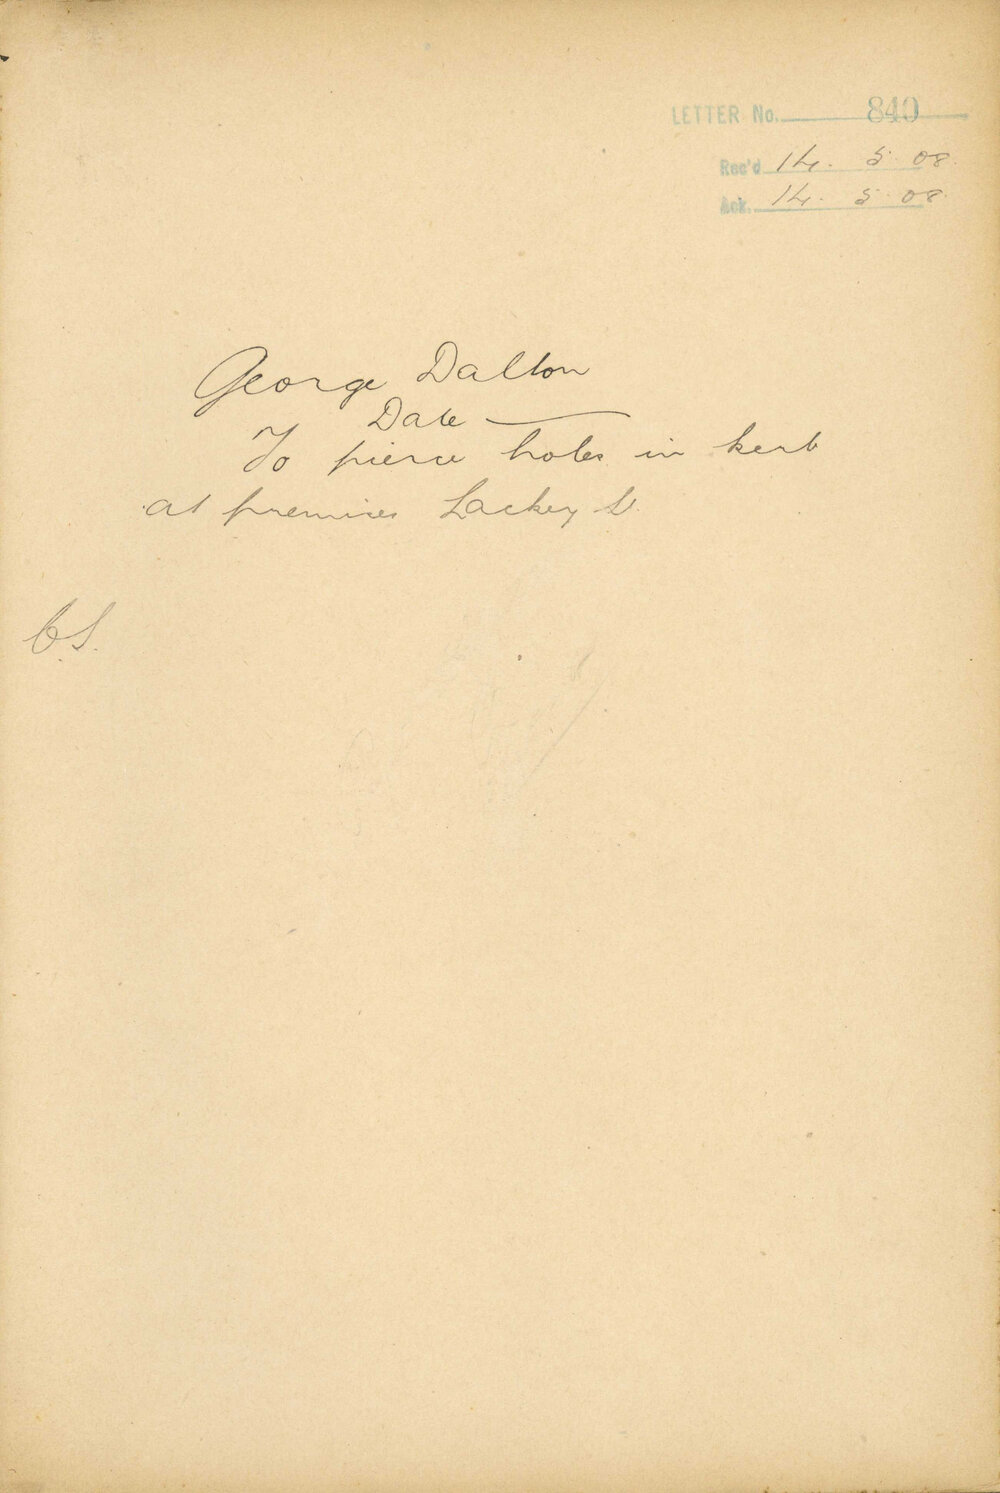 LETTER No. 840
Rec'd 14. 5. 08.
Ack. 14. 5. 08.
George Dalton
Date —
To pierce holes in kerb
at premises Lackey St.
C.S.